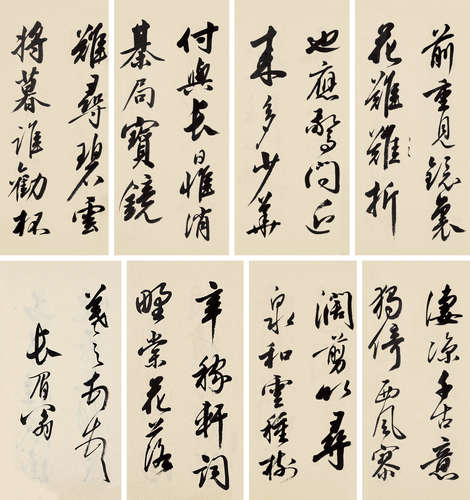 前重見鏡裏
花難難折
也應驚問近
來多少華
付與長日惟消
棊局寶鏡
難尋碧雲
將暮誰勸杯
凄涼千古意
獨倚西風寥
濶剪竹尋
泉和雲種樹
辛稼軒詞
野棠花落
長眉翁